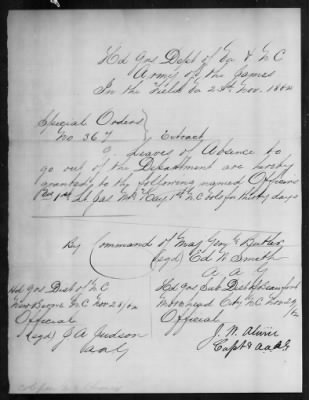 Hd Qrs Dept of Va & N.C
Army of the James
In the Field Va 24th Nov. 1864
Special Orders
No. 367 } Extract
9. Leaves of Absence to
go out of the Department are hereby
granted to the following named Officers
1st Lt Jas McKay 1st N.C. Vols for thirty days
By Command of Maj Genl Butler
(sgd) Ed W Smith
A A G
Hd Qrs Dist of N.C
New Berne N.C Nov 28/64
Official
(sgd) J A Judson
AAG
Hd Qrs Sub Dist Beaufort
Morehead City N.C Nov 29/64
Official
J. N.
Capt & A.A.A.G